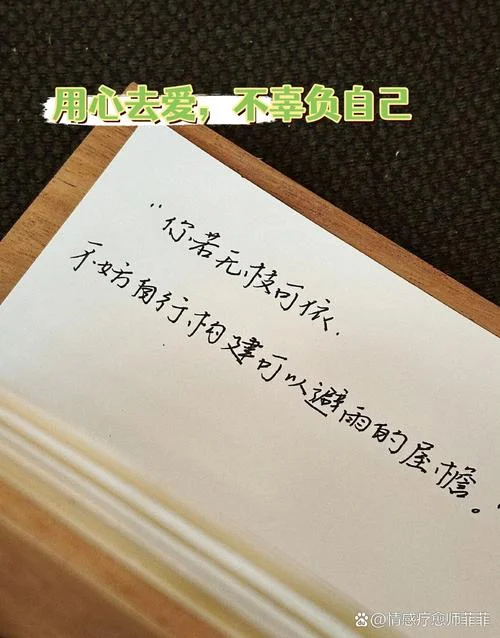 用心去爱，不辜负自己
“你若无枝可依.
不妨自行构建可以避雨的屋檐。”
情感疗愈师菲菲